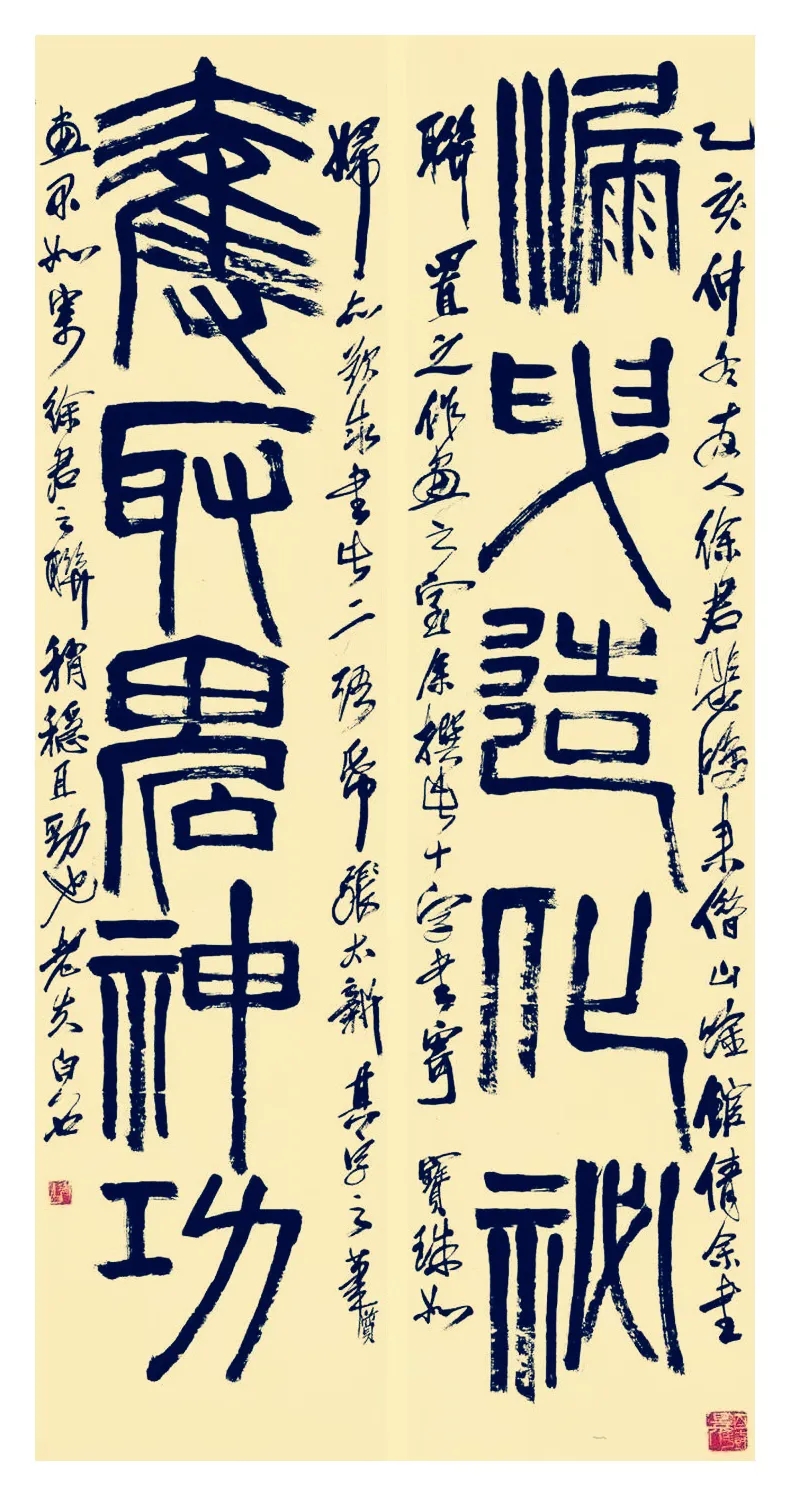 乙亥仲冬友人徐君悲鴻来借山唫館倩余書
漏曳造化祕
聯置之作畫之室余撰此十字書寄寶珠如
婦亦欲余書此二語帋張太新其字之筆
奪取鬼神功
畫不如寄徐君之聯稍穩且勁也老夫白石